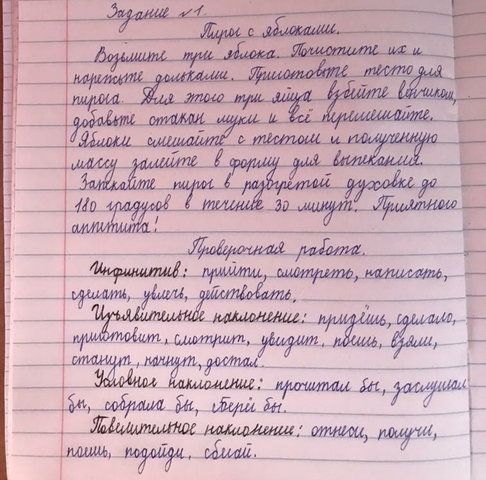 Задание №1.
Пирог с яблоками.
Возьмите три яблока. Почистите их и
нарежьте дольками. Приготовьте тесто для
пирога. Для этого три яйца взбейте венчиком,
добавьте стакан муки и всё перемешайте.
Яблоки смешайте с тестом и полученную
массу залейте в форму для выпекания.
Запекайте пирог в разогретой духовке до
180 градусов в течение 30 минут. Приятного
аппетита!
Проверочная работа.
Инфинитив: прийти, смотреть, написать,
сделать, увлечь, действовать.
Изъявительное наклонение: придёшь, сделало,
приготовит, смотрит, увидит, поешь, взяли,
станут, начнут, достал.
Условное наклонение: прочитал бы, заслушал
бы, собрала бы, берёг бы.
Повелительное наклонение: отнеси, получи,
поешь, подойди, сбегай.